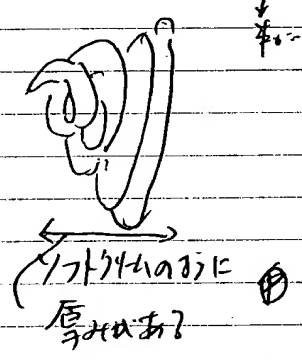 ソフトクリームのように
厚みがある